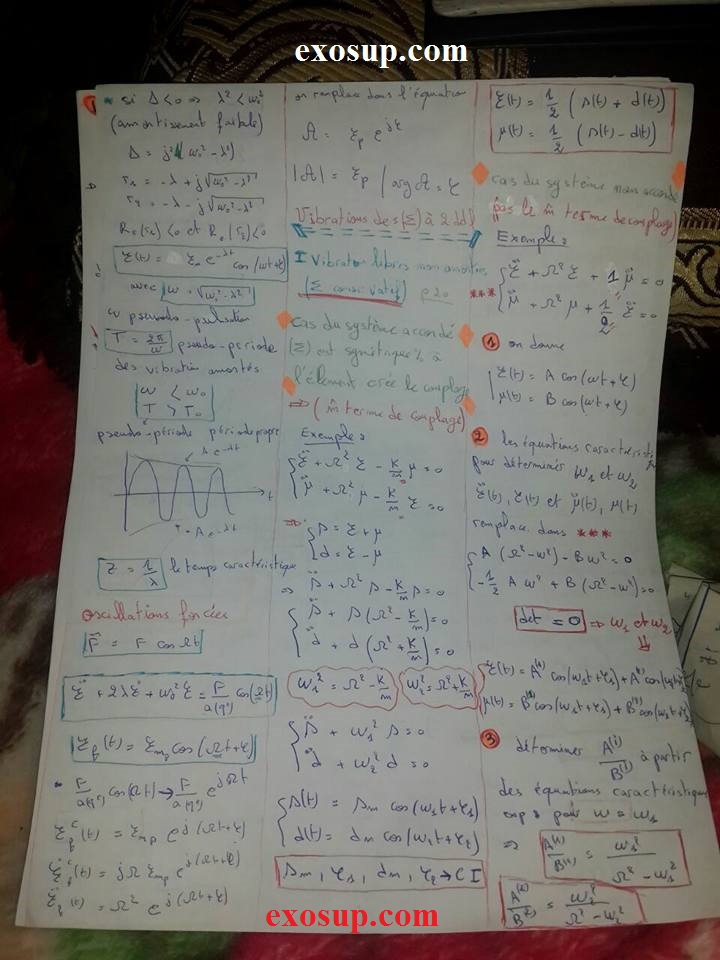 exosup.com
1 - si Δ < 0 => λ² < ω₀²
(amortissement faible)
Δ = j²(ω₀² - λ²)
r₁ = -λ + j√(ω₀² - λ²)
r₂ = -λ - j√(ω₀² - λ²)
Re(r₁) < 0 et Re(r₂) < 0
avec ω = √(ω₀² - λ²)
ω pseudo-pulsation
T = 2π/ω pseudo-periode
des vibration amortis
ω < ω₀
T > T₀
pseudo-période période propre
A e^-λt
t
- A e^-λt
Z = 1/λ le temps caractéristique
oscillations forcées
F = F cos Ωt
ξ̈ + 2λξ̇ + ω₀² ξ = F/a(q°) cos(Ωt)
- F/a(q°) cos(Ωt) → F/a(q°) e^jΩt
on remplace dans l'équation
A = ξp e^jφ
|A| = ξp / arg A = φ
Vibrations des (Σ) à 2 ddl
I Vibration libres non amorties
(Σ conservatif) p20
cas du système accordé
(Σ) est symétrique % à
l'élément crée le couplage
=> (m̂ terme de couplage)
Exemple :
ξ̈ + Ω² ξ - K/m μ = 0
μ̈ + Ω² μ - K/m ξ = 0
=> s = ξ + μ
d = ξ - μ
=> s̈ + Ω² s - K/m s = 0
s̈ + s(Ω² - K/m) = 0
d̈ + d(Ω² + K/m) = 0
ω₁² = Ω² - K/m
ω₂² = Ω² + K/m
s̈ + ω₁² s = 0
d̈ + ω₂² d = 0
s(t) = sm cos(ω₁t + φ₁)
d(t) = dm cos(ω₂t + φ₂)
sm, φ₁, dm, φ₂ → C I
ξ(t) = 1/2 (s(t) + d(t))
μ(t) = 1/2 (s(t) - d(t))
cas du système non accordé
(pas le m̂ terme de couplage)
Exemple :
*** ξ̈ + Ω² ξ + 1 μ̈ = 0
μ̈ + Ω² μ + 1/2 ξ̈ = 0
1 on donne
ξ(t) = A cos(ωt + φ)
μ(t) = B cos(ωt + φ)
2 les équations caractéristi
pour déterminés ω₁ et ω₂
ξ̈(t), ξ(t) et μ̈(t), μ(t)
remplace dans ***
A (Ω² - ω²) - Bω² = 0
-1/2 A ω² + B (Ω² - ω²) = 0
det = 0 => ω₁ et ω₂
3 déterminer A⁽ⁱ⁾/B⁽ⁱ⁾ à partir
des équations caractéristique
exp : pour ω = ω₁
=> A⁽¹⁾/B⁽¹⁾ = ω₁²/(Ω² - ω₁²)
A⁽²⁾/B⁽²⁾ = ω₂²/(Ω² - ω₂²)
exosup.com